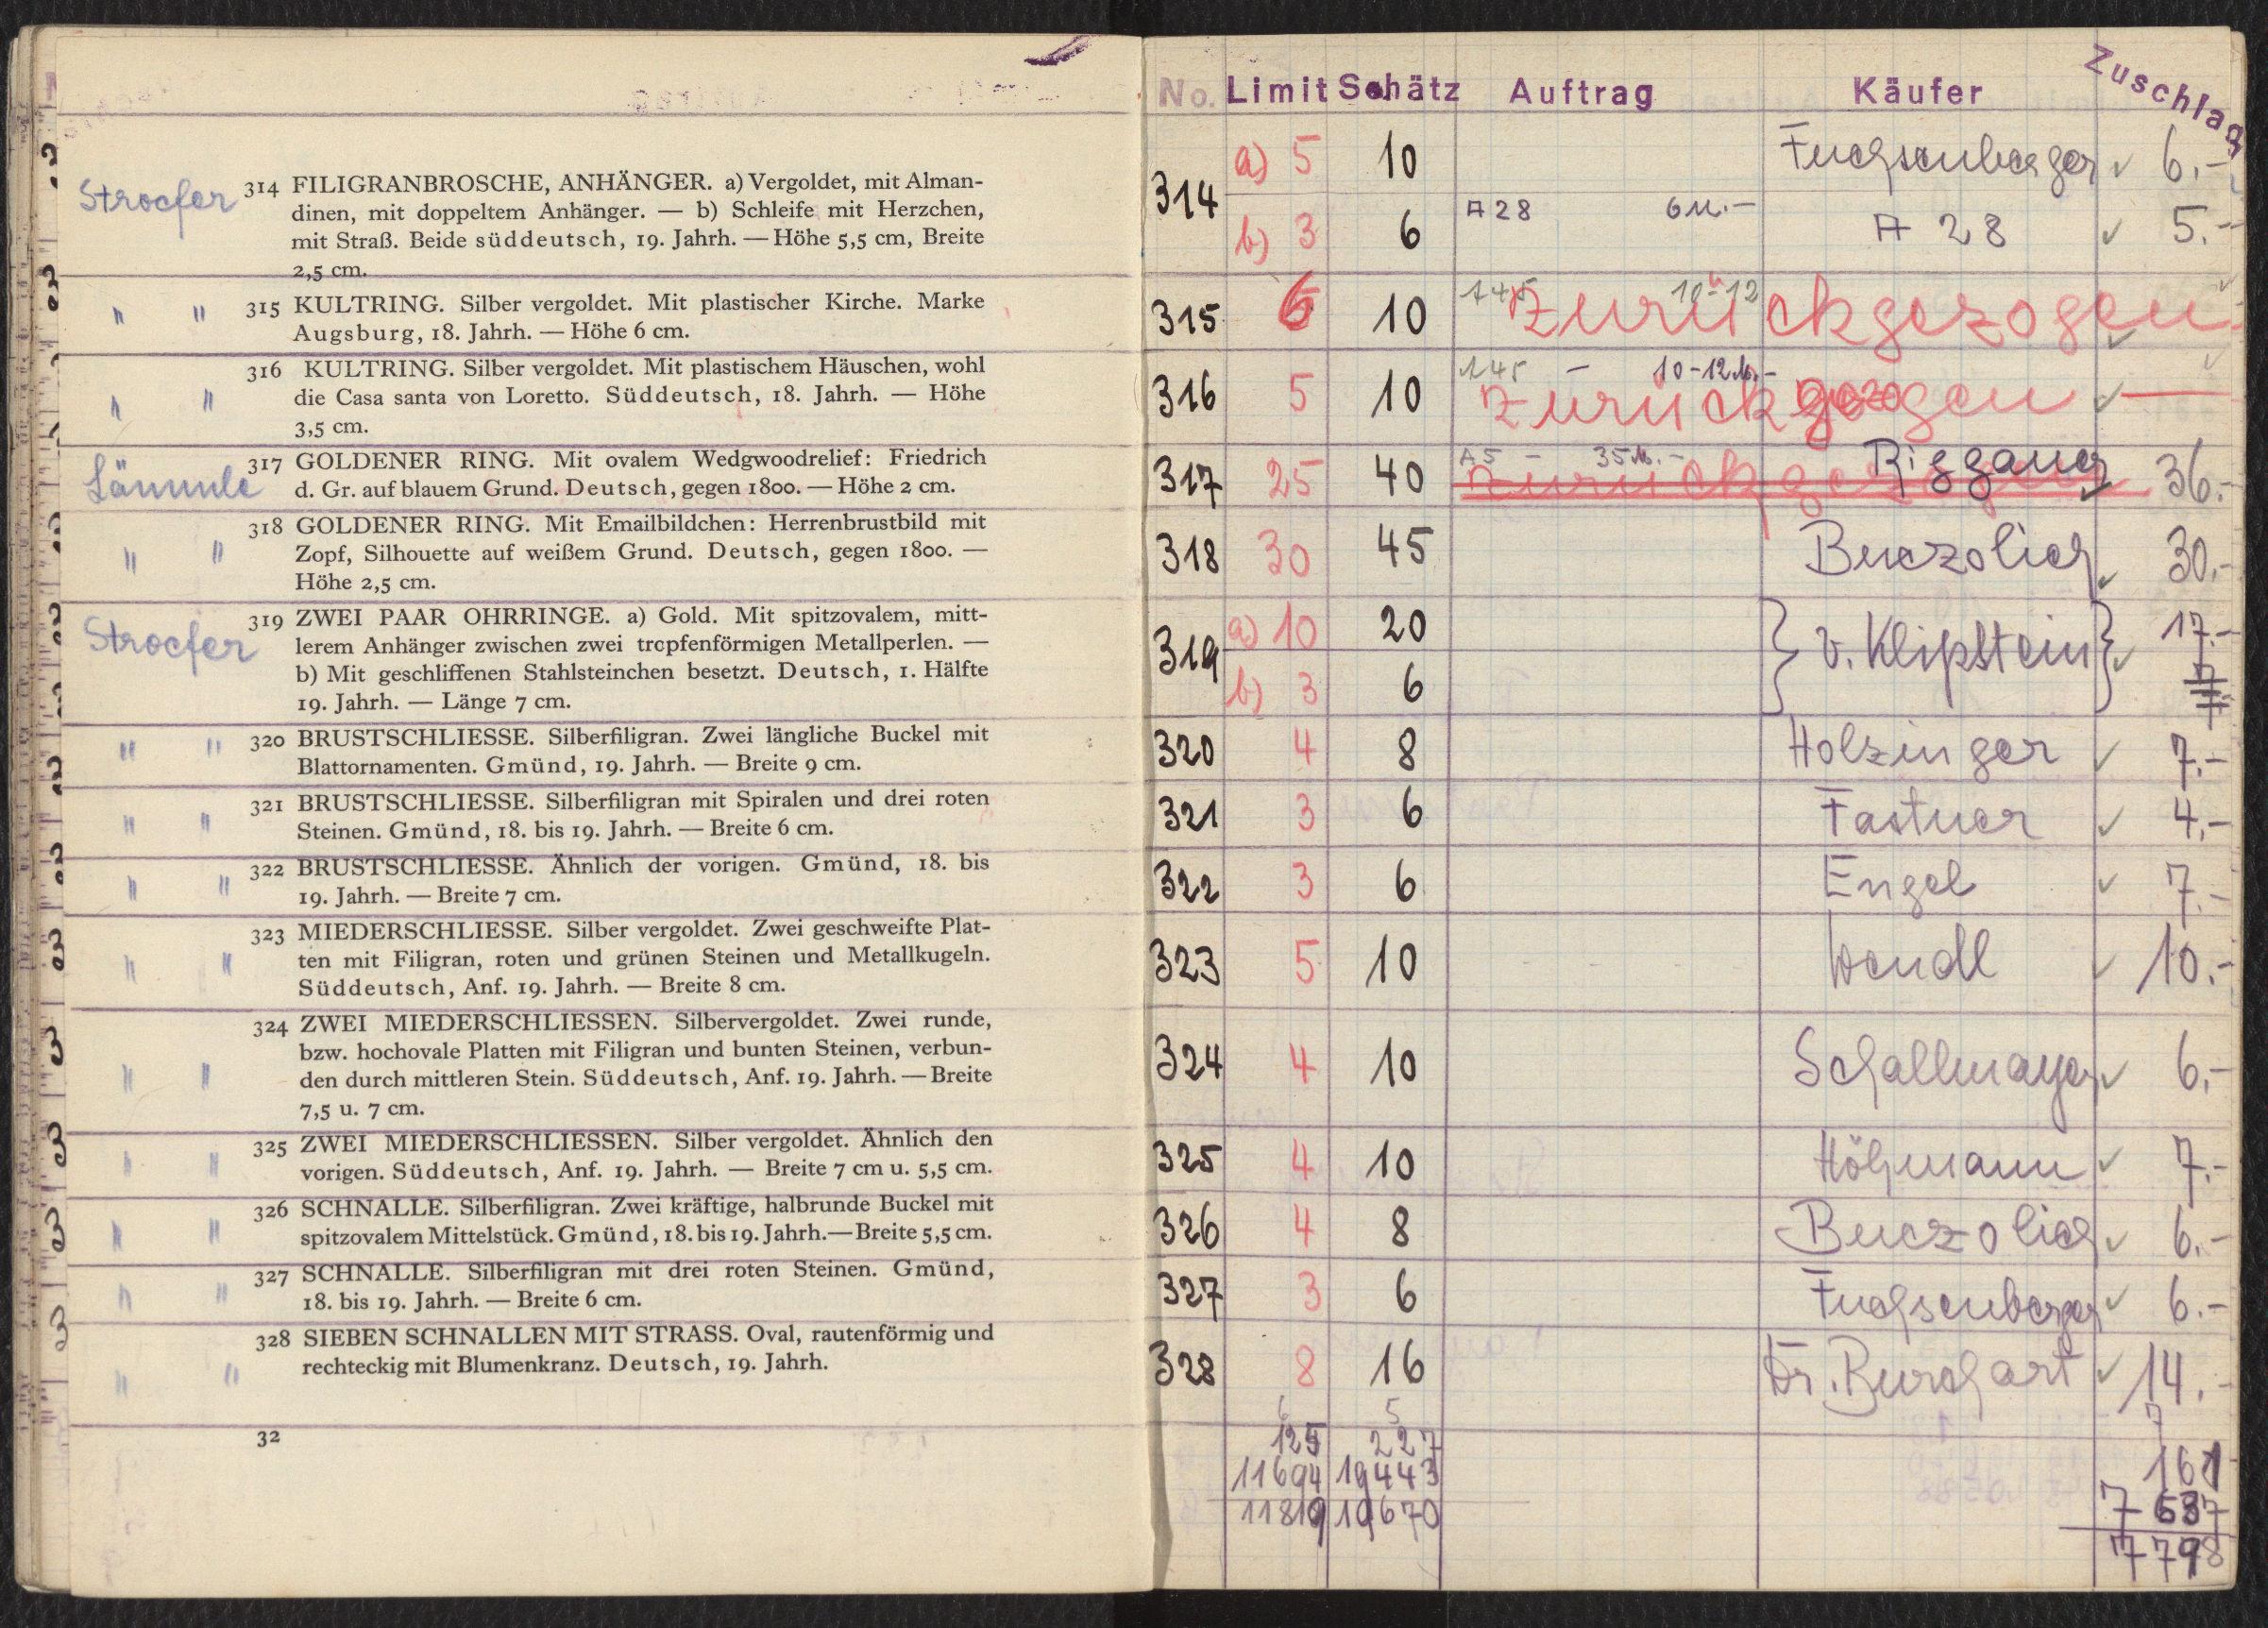 Stroefer 314 FILIGRANBROSCHE, ANHÄNGER. a) Vergoldet, mit Alman-
dinen, mit doppeltem Anhänger. — b) Schleife mit Herzchen,
mit Straß. Beide süddeutsch, 19. Jahrh. — Höhe 5,5 cm, Breite
2,5 cm.
" " 315 KULTRING. Silber vergoldet. Mit plastischer Kirche. Marke
Augsburg, 18. Jahrh. — Höhe 6 cm.
" " 316 KULTRING. Silber vergoldet. Mit plastischem Häuschen, wohl
die Casa santa von Loretto. Süddeutsch, 18. Jahrh. — Höhe
3,5 cm.
Lämmle 317 GOLDENER RING. Mit ovalem Wedgwoodrelief: Friedrich
d. Gr. auf blauem Grund. Deutsch, gegen 1800. — Höhe 2 cm.
" " 318 GOLDENER RING. Mit Emailbildchen: Herrenbrustbild mit
Zopf, Silhouette auf weißem Grund. Deutsch, gegen 1800. —
Höhe 2,5 cm.
Stroefer 319 ZWEI PAAR OHRRINGE. a) Gold. Mit spitzovalem, mitt-
lerem Anhänger zwischen zwei tropfenförmigen Metallperlen. —
b) Mit geschliffenen Stahlsteinchen besetzt. Deutsch, 1. Hälfte
19. Jahrh. — Länge 7 cm.
" " 320 BRUSTSCHLIESSE. Silberfiligran. Zwei längliche Buckel mit
Blattornamenten. Gmünd, 19. Jahrh. — Breite 9 cm.
" " 321 BRUSTSCHLIESSE. Silberfiligran mit Spiralen und drei roten
Steinen. Gmünd, 18. bis 19. Jahrh. — Breite 6 cm.
" " 322 BRUSTSCHLIESSE. Ähnlich der vorigen. Gmünd, 18. bis
19. Jahrh. — Breite 7 cm.
" " 323 MIEDERSCHLIESSE. Silber vergoldet. Zwei geschweifte Plat-
ten mit Filigran, roten und grünen Steinen und Metallkugeln.
Süddeutsch, Anf. 19. Jahrh. — Breite 8 cm.
" " 324 ZWEI MIEDERSCHLIESSEN. Silbervergoldet. Zwei runde,
bzw. hochovale Platten mit Filigran und bunten Steinen, verbun-
den durch mittleren Stein. Süddeutsch, Anf. 19. Jahrh. — Breite
7,5 u. 7 cm.
" " 325 ZWEI MIEDERSCHLIESSEN. Silber vergoldet. Ähnlich den
vorigen. Süddeutsch, Anf. 19. Jahrh. — Breite 7 cm u. 5,5 cm.
" " 326 SCHNALLE. Silberfiligran. Zwei kräftige, halbrunde Buckel mit
spitzovalem Mittelstück. Gmünd, 18. bis 19. Jahrh. — Breite 5,5 cm.
" " 327 SCHNALLE. Silberfiligran mit drei roten Steinen. Gmünd,
18. bis 19. Jahrh. — Breite 6 cm.
" " 328 SIEBEN SCHNALLEN MIT STRASS. Oval, rautenförmig und
rechteckig mit Blumenkranz. Deutsch, 19. Jahrh.
32
No. Limit Schätz Auftrag Käufer Zuschlag
314 a) 5 10 Fuchsenberger ✓ 6.-
b) 3 6 A 28 6 M.- A 28 ✓ 5.-
315 6 10 A45 10-12 zurückgezogen ✓
316 5 10 A45 - 10-12 M.- zurückgezogen ✓ —
317 25 40 A5 - 35 M.- zurückgezogen Riggauer ✓ 36.-
318 30 45 Buczolich ✓ 30.-
319 a) 10 20 } v. Klipstein } ✓ 17.-
b) 3 6
320 4 8 Holzinger ✓ 7.-
321 3 6 Fastner ✓ 4.-
322 3 6 Engel ✓ 7.-
323 5 10 Wendl ✓ 10.-
324 4 10 Schallmayer ✓ 6.-
325 4 10 Höhmann ✓ 7.-
326 4 8 Buczolich ✓ 6.-
327 3 6 Fuchsenberger ✓ 6.-
328 8 16 Dr. Burchart ✓ 14.-
6 5 7
125 227 161
11694 19443 7 637
11819 19670 7798